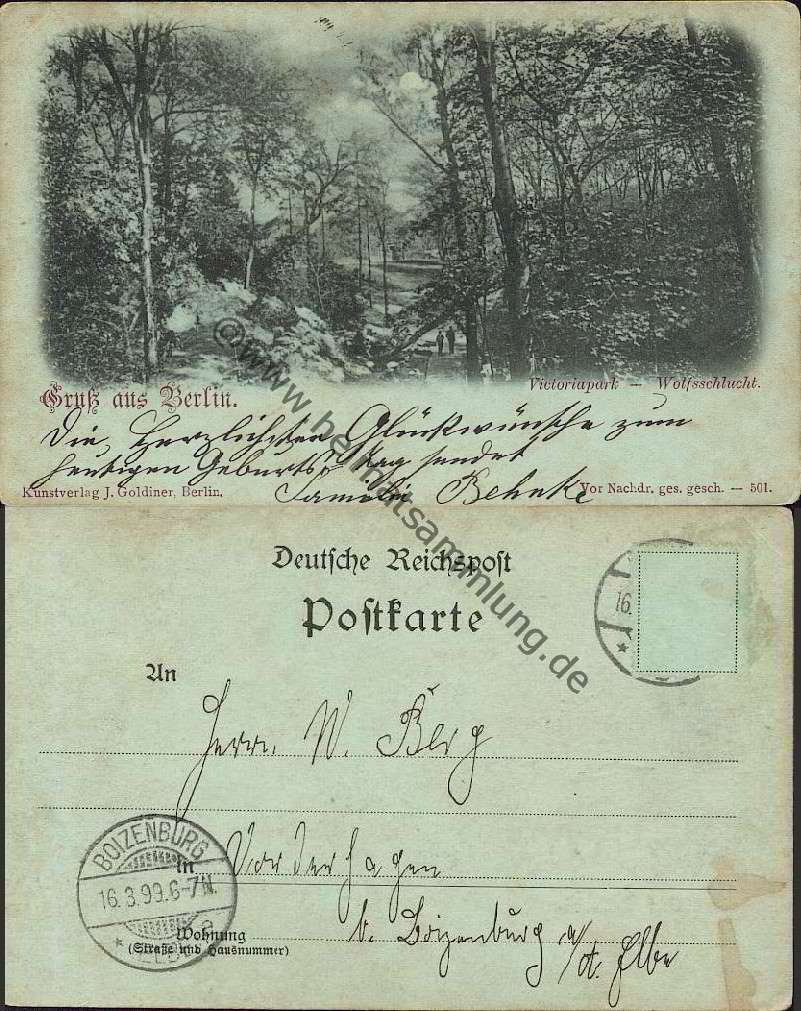 Victoriapark — Wolfsschlucht.
Gruß aus Berlin.
Die Herzlichsten Glückwünsche zum
heutigen Geburtstag sendet
Familie Behnke
Kunstverlag J. Goldiner, Berlin.
Vor Nachdr. ges. gesch. — 501.
©www.heimatsammlung.de
Deutsche Reichspost
Postkarte
16.
An
Herrn W. Berg
BOIZENBURG
16.3.99.6-7N.
in
Vorderhagen
b. Boizenburg a/d. Elbe
Wohnung
(Straße und Hausnummer)